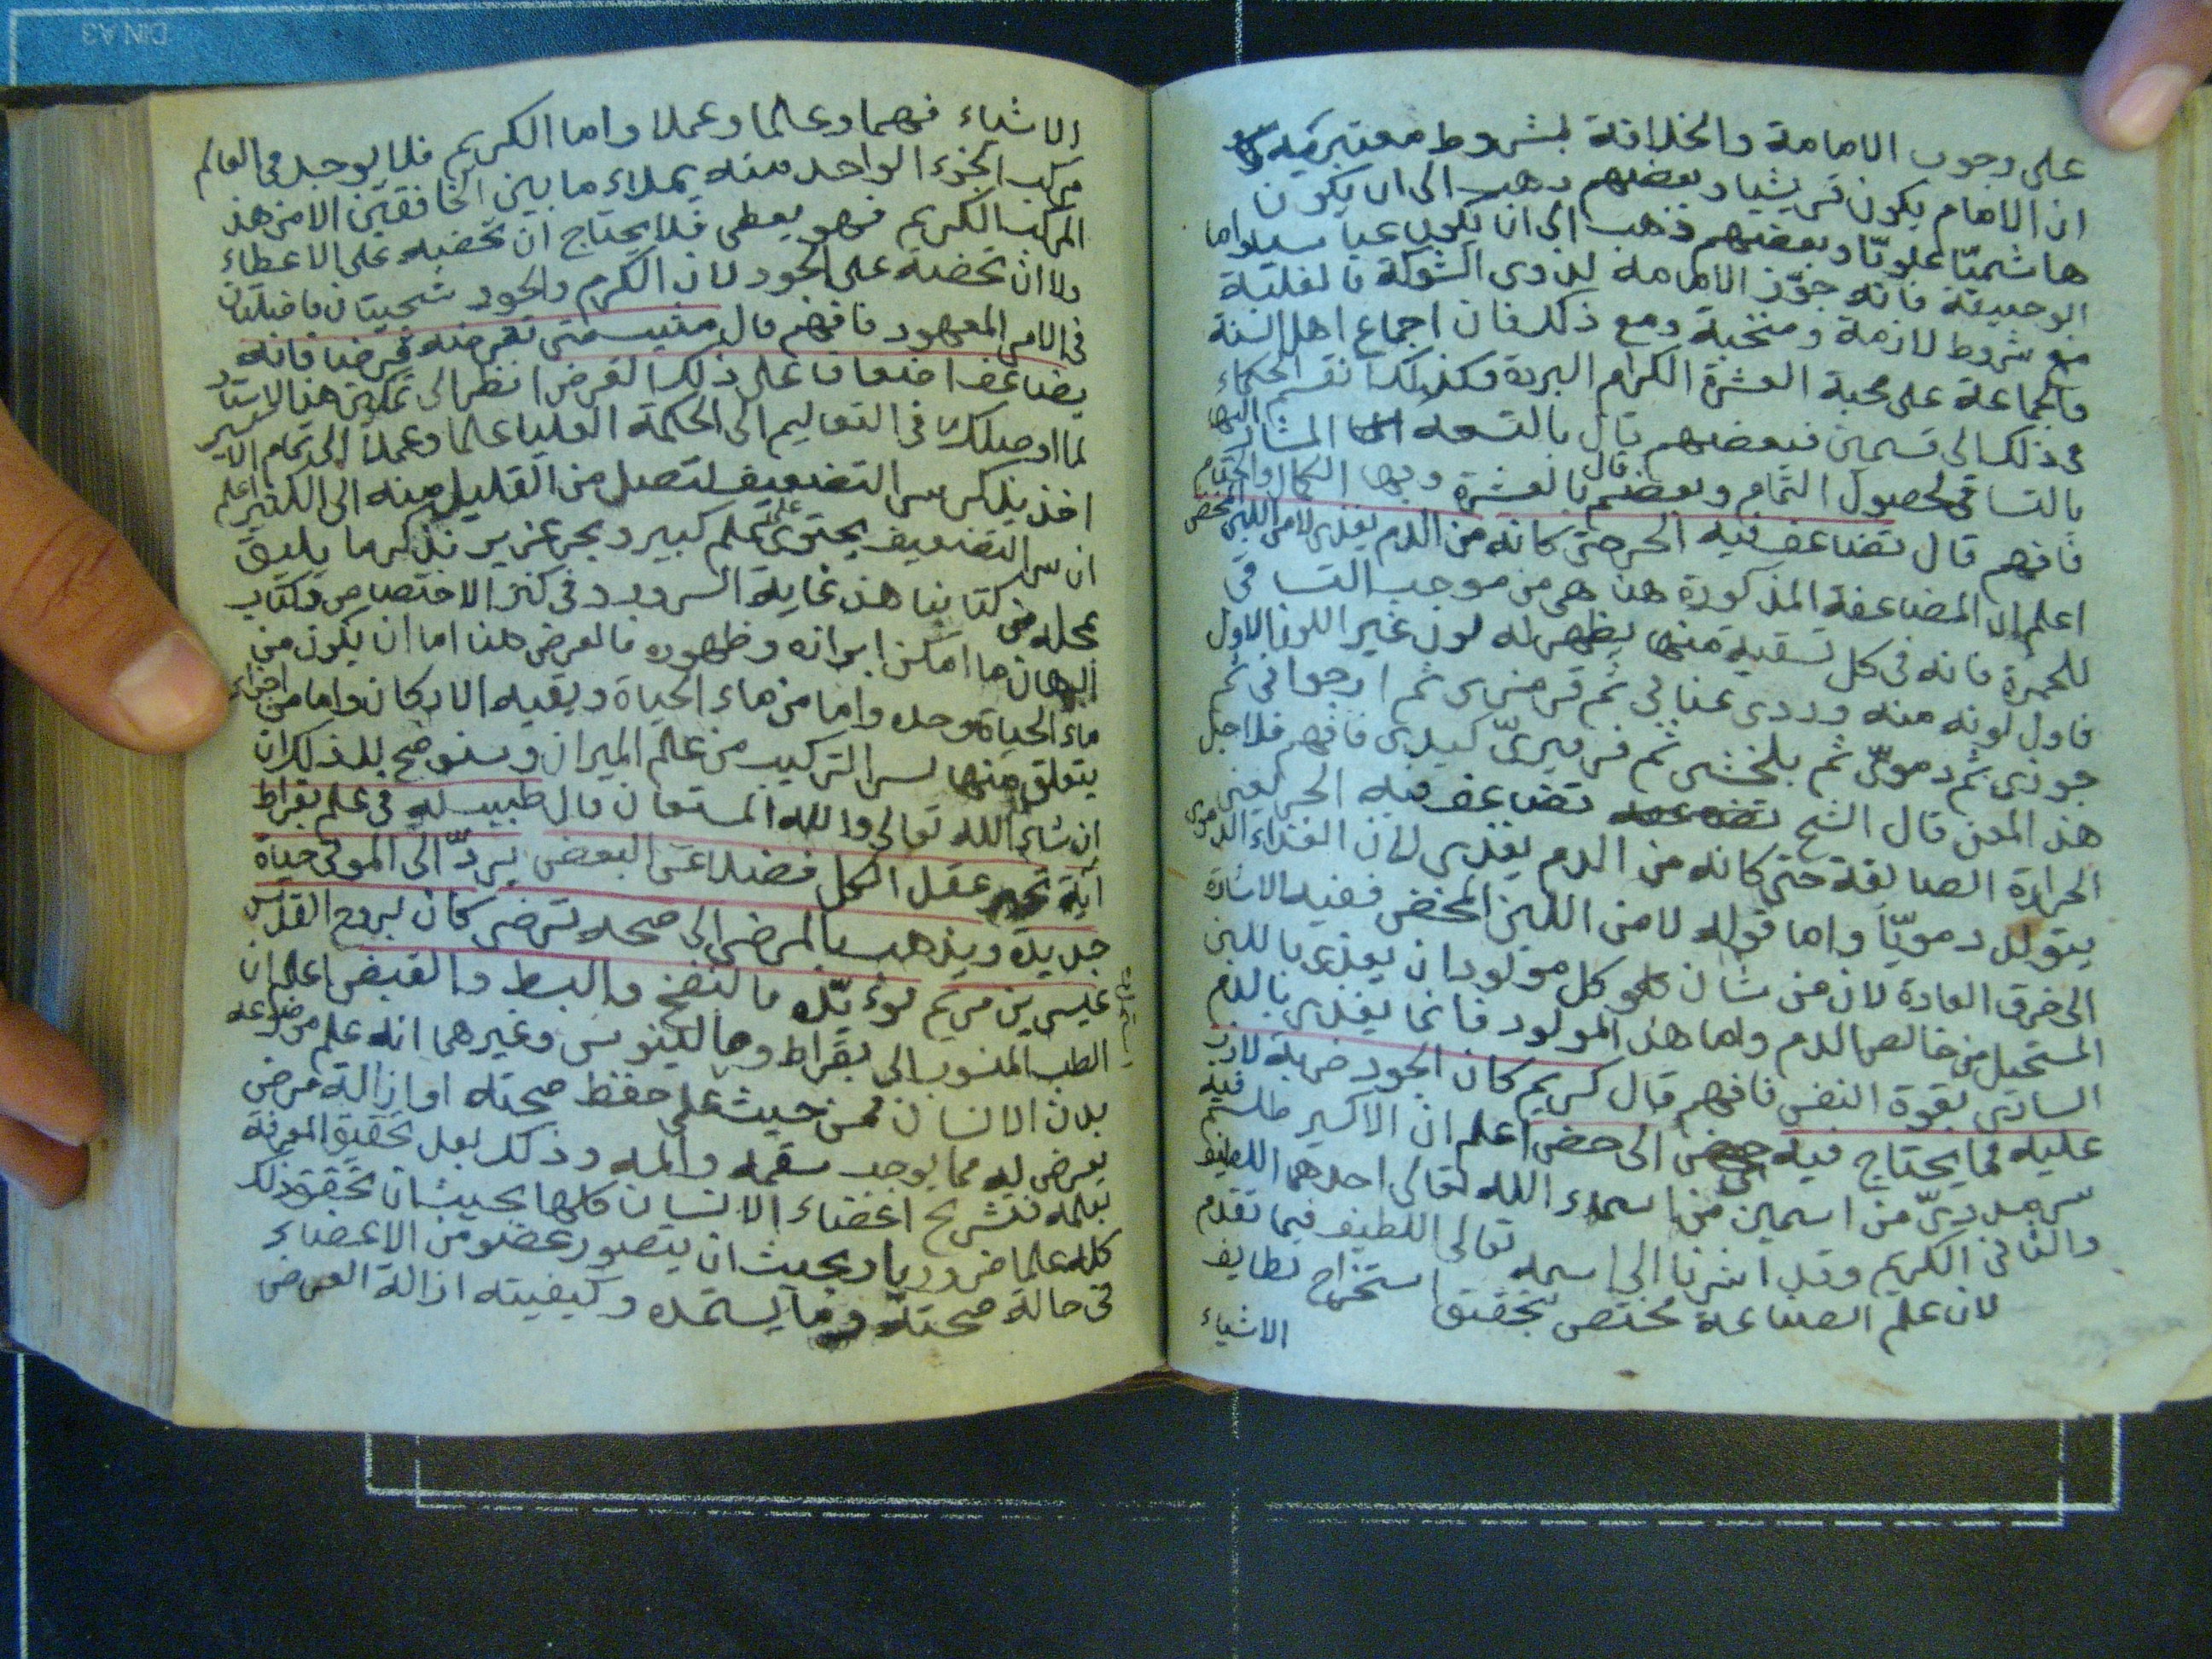 على وجوب الامامة والخلافة بشروط معتبرة
ان الامام يكون قريشيا وبعضهم ذهب الى ان يكون
هاشميّا علويّا وبعضهم ذهب الى ان يكون عباسيا واما
ابو حنيفة فانه جوّز الامامة لذوى الشوكة فالغلبة
مع شروط لازمة ومع ذلك فان اجماع اهل السنة
والجماعة على محبة العشرة الكرام البررة فكذلك انقسم الحكماء
فى ذلك الى قسمين فبعضهم قال بالتسعة المشار اليها
بالتساقى لحصول التمام وبعضهم قال بالعشرة وبها الكمال والختام
فافهم قال تضاعف فيه الحر حتى كانه من الدم يغذى لا من اللبن المخض
اعلم ان المضاعفة المذكورة هنا هى من موجب التساقى
للحمرة فانه فى كل تسقية منها يظهر له لون غير اللون الاول
فاول لونه منه وردى ثم عنابى ثم قرمزى ثم ارجوانى ثم
جوزى ثم دموىّ ثم بلخشى ثم فرفيرىّ كبدى فافهم فلاجل
هذا المعنى قال الشيخ تضاعف فيه الحر يعنى
الحرارة الصابغة حتى كانه من الدم يغذى لان الغذاء الدموى
يتولد دمويّا واما قوله لا من اللبن المخض ففيه الاشارة
الى خرق العادة لان من شان كل مولود ان يغذى باللبن
المستحيل من خالص الدم واما هذا المولود فانما يغذى بالدم
السارى بقوة النفس فافهم قال كريم كان الجود ضربة لازب
عليه فما يحتاج فيه الى حض اعلم ان الاكسير طلسم فيه
سر مددىّ من اسمين من اسماء الله تعالى احدهما اللطيف
والثانى الكريم وقد اشرنا الى اسمه تعالى اللطيف فيما تقدم
لان علم الصناعة مختص بتحقيق استخراج لطايف
الاشياء
الاشياء فهما وعلما وعملا واما الكريم فلا يوجد فى العالم
مركب الجزء الواحد منه يملاء ما بين الخافقين الا من هذ
المركب الكريم فهو يعطى فلا يحتاج ان تحضه على الاعطاء
ولا ان تحضه على الجود لان الكرم والجود سجيتان فاضلتان
فى الامر المعهود فافهم قال متى تقرضه قرضا فانه
يضاعف اضعافا على ذلك القرض انظر الى تمكين هذ الاستاد
لما اوصلك فى التعاليم الى الحكمة العليا علما وعملا الى تمام الاكسير
اخذ يذكر سر التضعيف لتصل من القليل منه الى الكثير اعلم
ان سر التضعيف يحتوى على علم كبير وبحر غزير نذكر ما يليق
بمحله من كتابنا هذ غاية السرور وفى كنز الاختصاص وكتاب
البرهان ما امكن ابرازه وظهوره فالغرض هنا اما ان يكون من
ماء الحياة وحده واما من ماء الحياة وبقية الاركان واما من اجزاء
يتعلق منها بسر التركيب من علم الميزان وسنوضح لك ذلك ان
ان شاء الله تعالى والله المستعان قال طبيب له فى علم بقراط
آية تحير عقل الكل فضلا عن البعض يردّ الى الموتى حياة
جديدة ويذهب بالمرضى الى صحة ترضى كان لروح القدس
عيسى بن مريم قوة بالنفخ والبسط والقبض اعلم ان
الطب المنسوب الى بقراط وجالينوس وغيرهما انه علم موضوعه
بدن الانسان من حيث على حفظ صحته او ازالة مرض
يعرض له مما يوجب سقمه والمه وذلك بعد تحقيق المعرفة
بعلمه فتشريح اعضاء الانسان كلها بحيث ان تحقق ذلك
كله علما ضروريا وبحيث ان يتصور عضو من الاعضاء
فى حالة صحته وما يستمده وكيفيته ازالة العرض